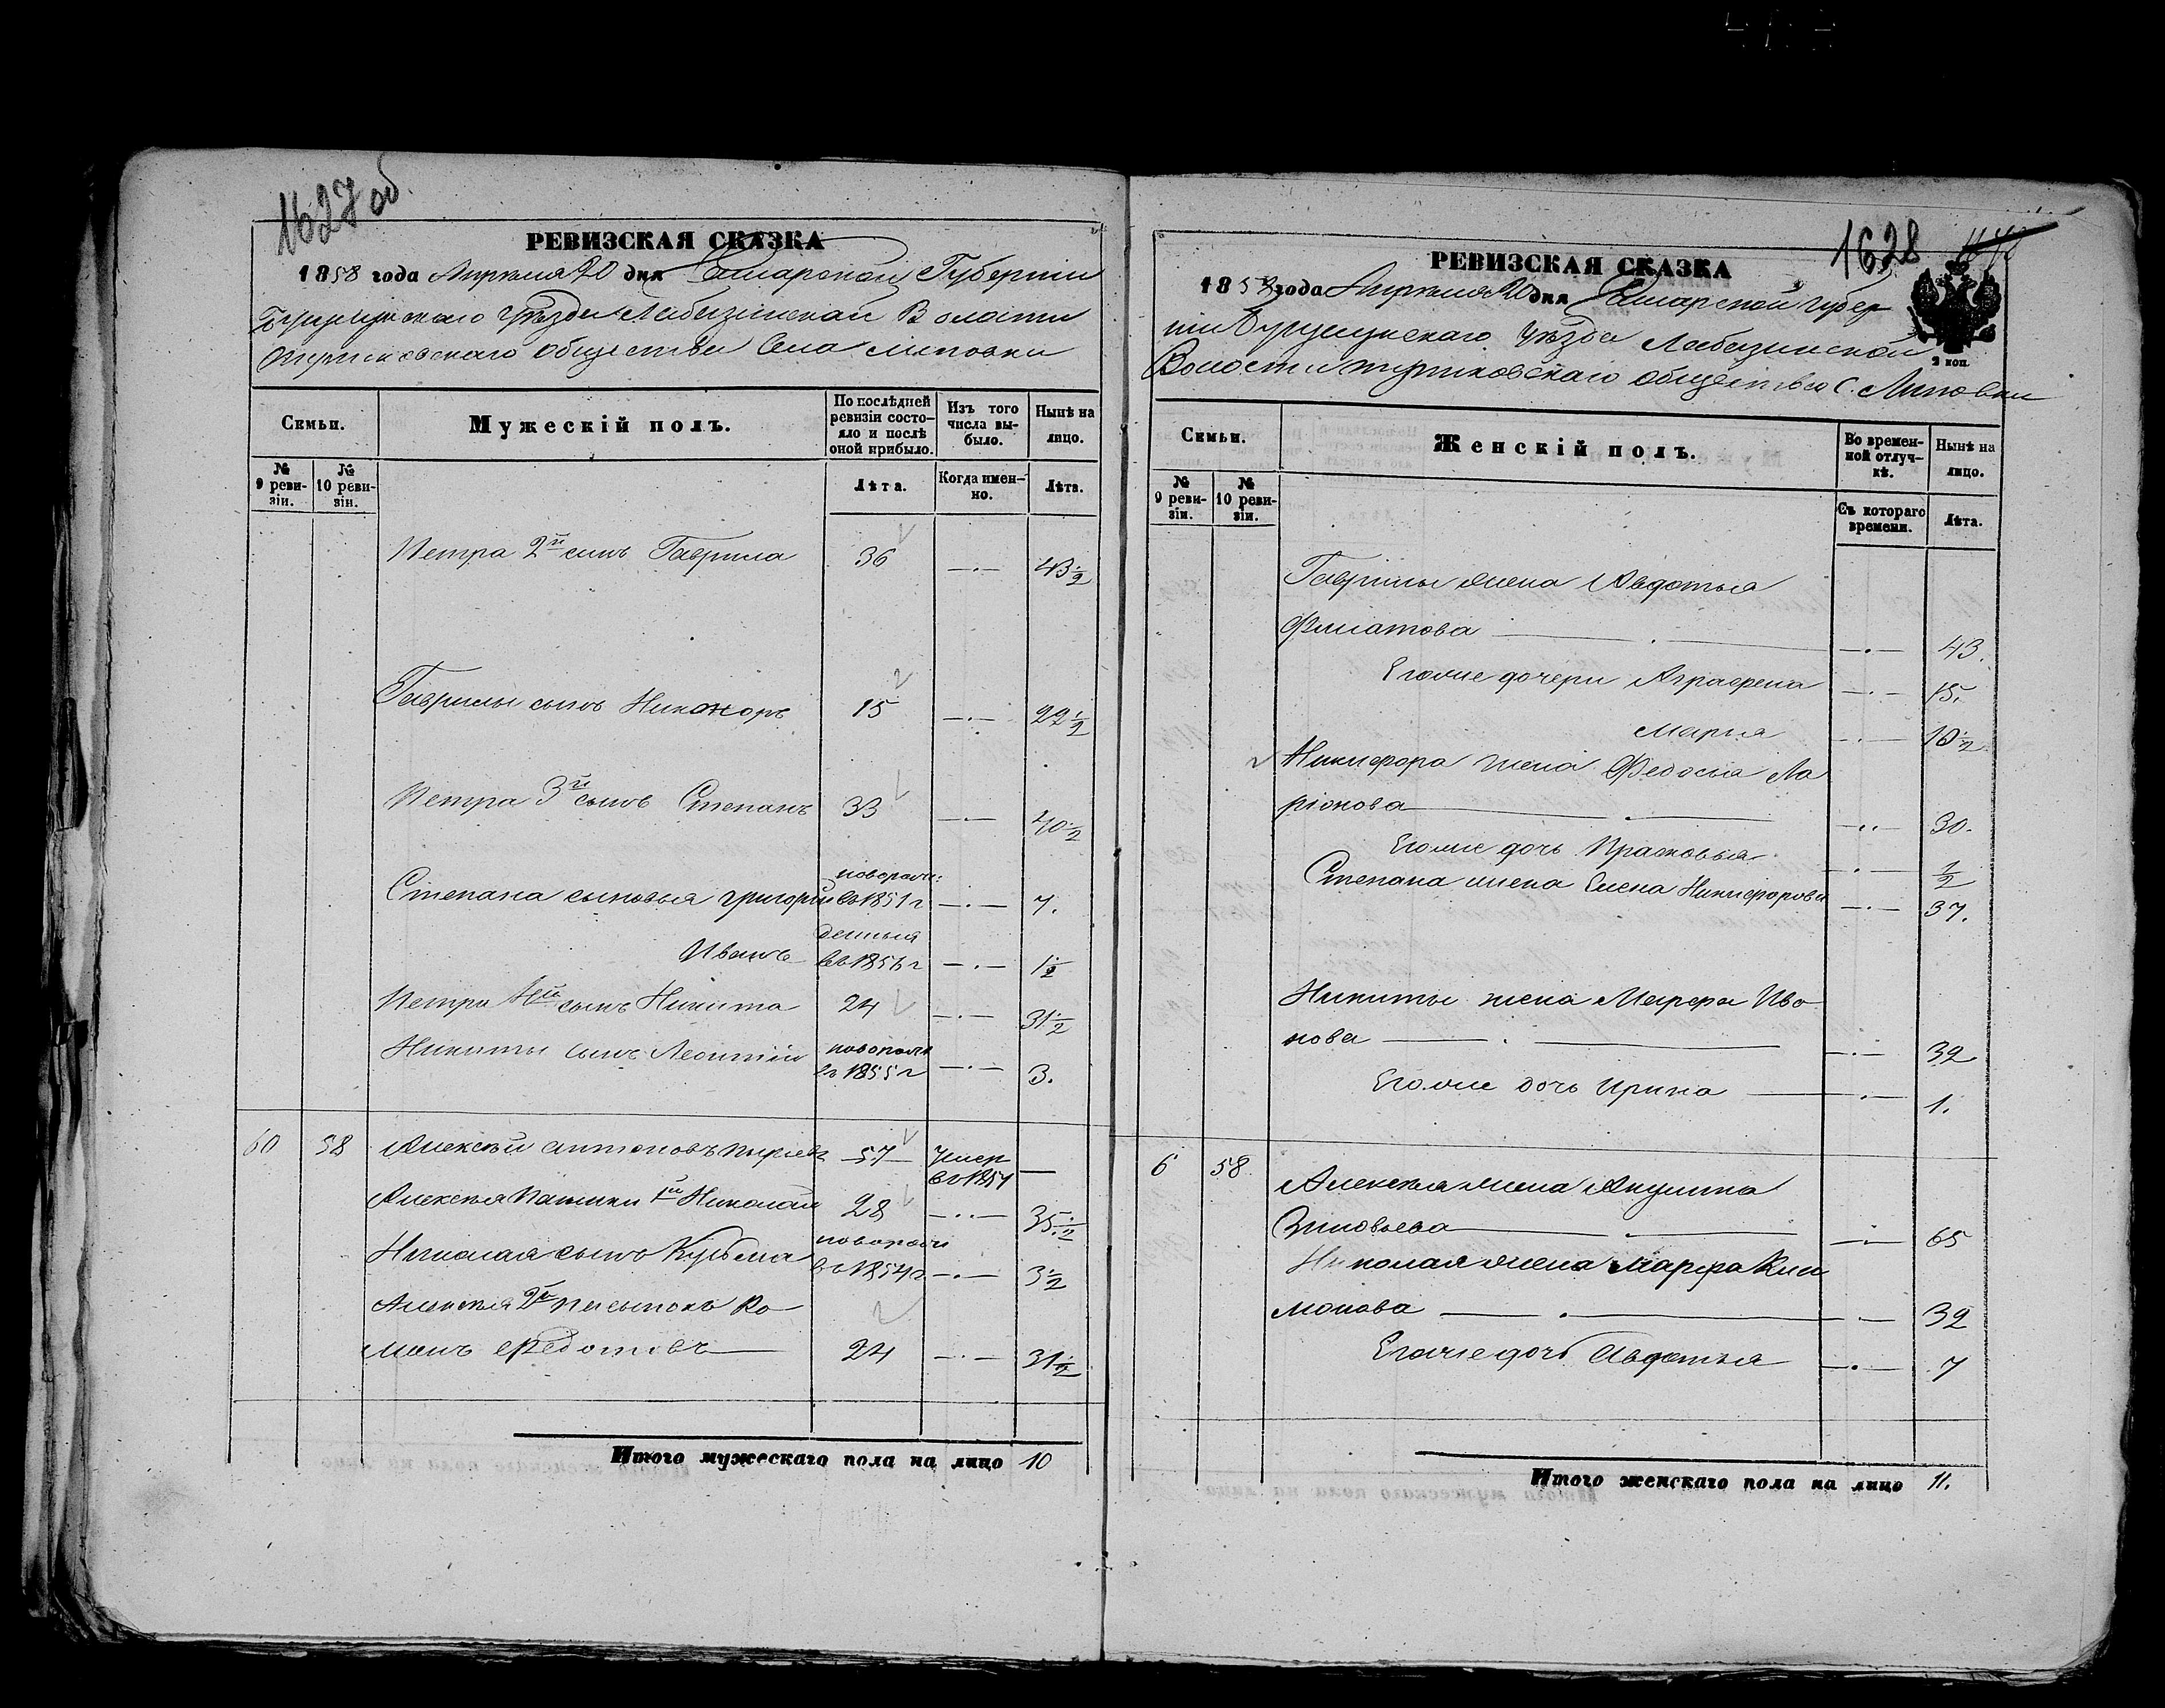 1627 об.
РЕВИЗСКАЯ СКАЗКА
1858 года Апреля 20 дня Самарской Губернiи
Бугурусланскаго Уѣзда Лабазинской Волости
общества Села Липовки
Семьи.
Мужескiй полъ.
По послѣдней ревизiи состояло и послѣ оной прибыло.
Изъ того числа выбыло.
Нынѣ на лицо.
№ 9 ревизiи.
№ 10 ревизiи.
Лѣта.
Когда именно.
Лѣта.
Петра 2й сынъ Гаврила 36 —.— 43½
Гаврилы сынъ Никаноръ 15 —.— 22½
Петра 3й сынъ Степанъ 33 —.— 40½
Степана сыновья Григорiй новорож: въ 1851 г —.— 7.
Иванъ денныя въ 1856 г —.— 1½
Петра 4й сынъ Никита 24 —.— 31½
Никиты сынъ Леонтiй новорож въ 1855 г —.— 3.
60 58 Алексѣй Антоновъ 57 Умер въ 1854 —
Алексѣя 1й Николай 28 —..— 35½
Николая сынъ Кузьма новорож въ 1854 г. —.— 3½
Алексѣя 2й пасынокъ Ро-
манъ Федотовъ 24 —.— 31½
Итого мужескаго пола на лицо 10
1628
РЕВИЗСКАЯ СКАЗКА
1858 года Апреля 20 дня Самарской Губер
нiи Бугурусланскаго Уѣзда Лабазинской
Волости общества С. Липовки
2 коп.
Семьи.
Женскiй полъ.
Во временной отлучкѣ.
Нынѣ на лицо.
№ 9 ревизiи.
№ 10 ревизiи.
Съ котораго времени.
Лѣта.
Гаврилы жена Авдотья
Филатова —.— 43.
Его же дочери Аграфена —.— 15.
Марья —.— 10½
Никифора жена Федосья Ла
рiонова —..— 30.
Его же дочь Прасковья —.— ½
Степана жена Елена Никифорова —.— 37.
Никиты жена Марфа Ива
нова —.— 32
Его же дочь Ирина —.— 1.
6 58. Алексѣя жена Акулина
Зиновьева —.— 65
Николая жена Марфа Кли
монова —.— 32
Его же дочь Авдотья —.— 7
Итого женскаго пола на лицо 11.